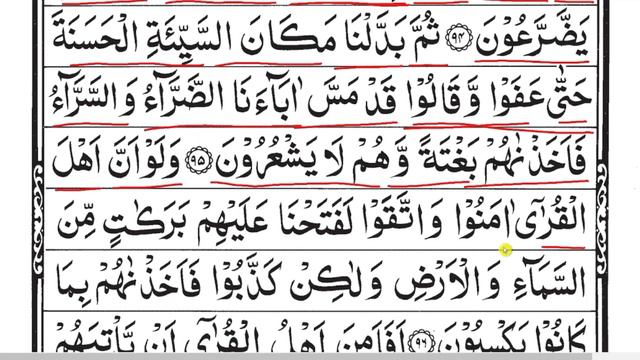 يَضَّرَّعُوْنَ ﴿۹۴﴾ ثُمَّ بَدَّلْنَا مَكَانَ السَّيِّئَةِ الْحَسَنَةَ
حَتّٰى عَفَوْا وَّقَالُوْا قَدْ مَسَّ اٰبَآءَنَا الضَّرَّآءُ وَالسَّرَّآءُ
فَاَخَذْنٰهُمْ بَغْتَةً وَّهُمْ لَا يَشْعُرُوْنَ ﴿۹۵﴾ وَلَوْ اَنَّ اَهْلَ
الْقُرٰٓى اٰمَنُوْا وَاتَّقَوْا لَفَتَحْنَا عَلَيْهِمْ بَرَكٰتٍ مِّنَ
السَّمَآءِ وَالْاَرْضِ وَلٰكِنْ كَذَّبُوْا فَاَخَذْنٰهُمْ بِمَا
كَانُوْا يَكْسِبُوْنَ ﴿۹۶﴾ اَفَاَمِنَ اَهْلُ الْقُرٰٓى اَنْ يَّاْتِيَهُمْ